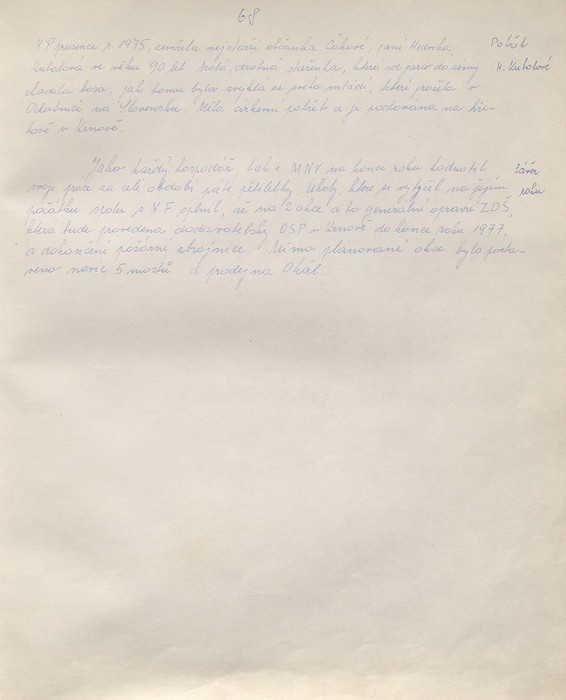 68
V prosence r. 1975, zemřela nejstarší občanka Čakové, paní
Kubalová ve věku 90 let. Malá, drobná stařenka, která od jara do zimy
chodila bosa, jak tomu byla zvyklá ze svého mládí, které prožila v
na Slovensku. Měla církevní pohřeb a je pochována na hřbi-
tově v Krnově.
Pohřeb
H. Kubalové
Jako každý hospodář, tak i MNV na konci roku hodnotil
svoji práci za celé období páté pětiletky. Úkoly, které si vytyčil na jejím
počátku spolu s N.F splnil, až na 2 akce a to generální opravu ZDŠ,
která bude provedena dodavatelsky OSP v Krnově do konce roku 1977,
a dokončení požární zbrojnice. Mimo plánované akce bylo posta-
veno navíc 5 mostů a prodejna Okál.
Závěr
roku